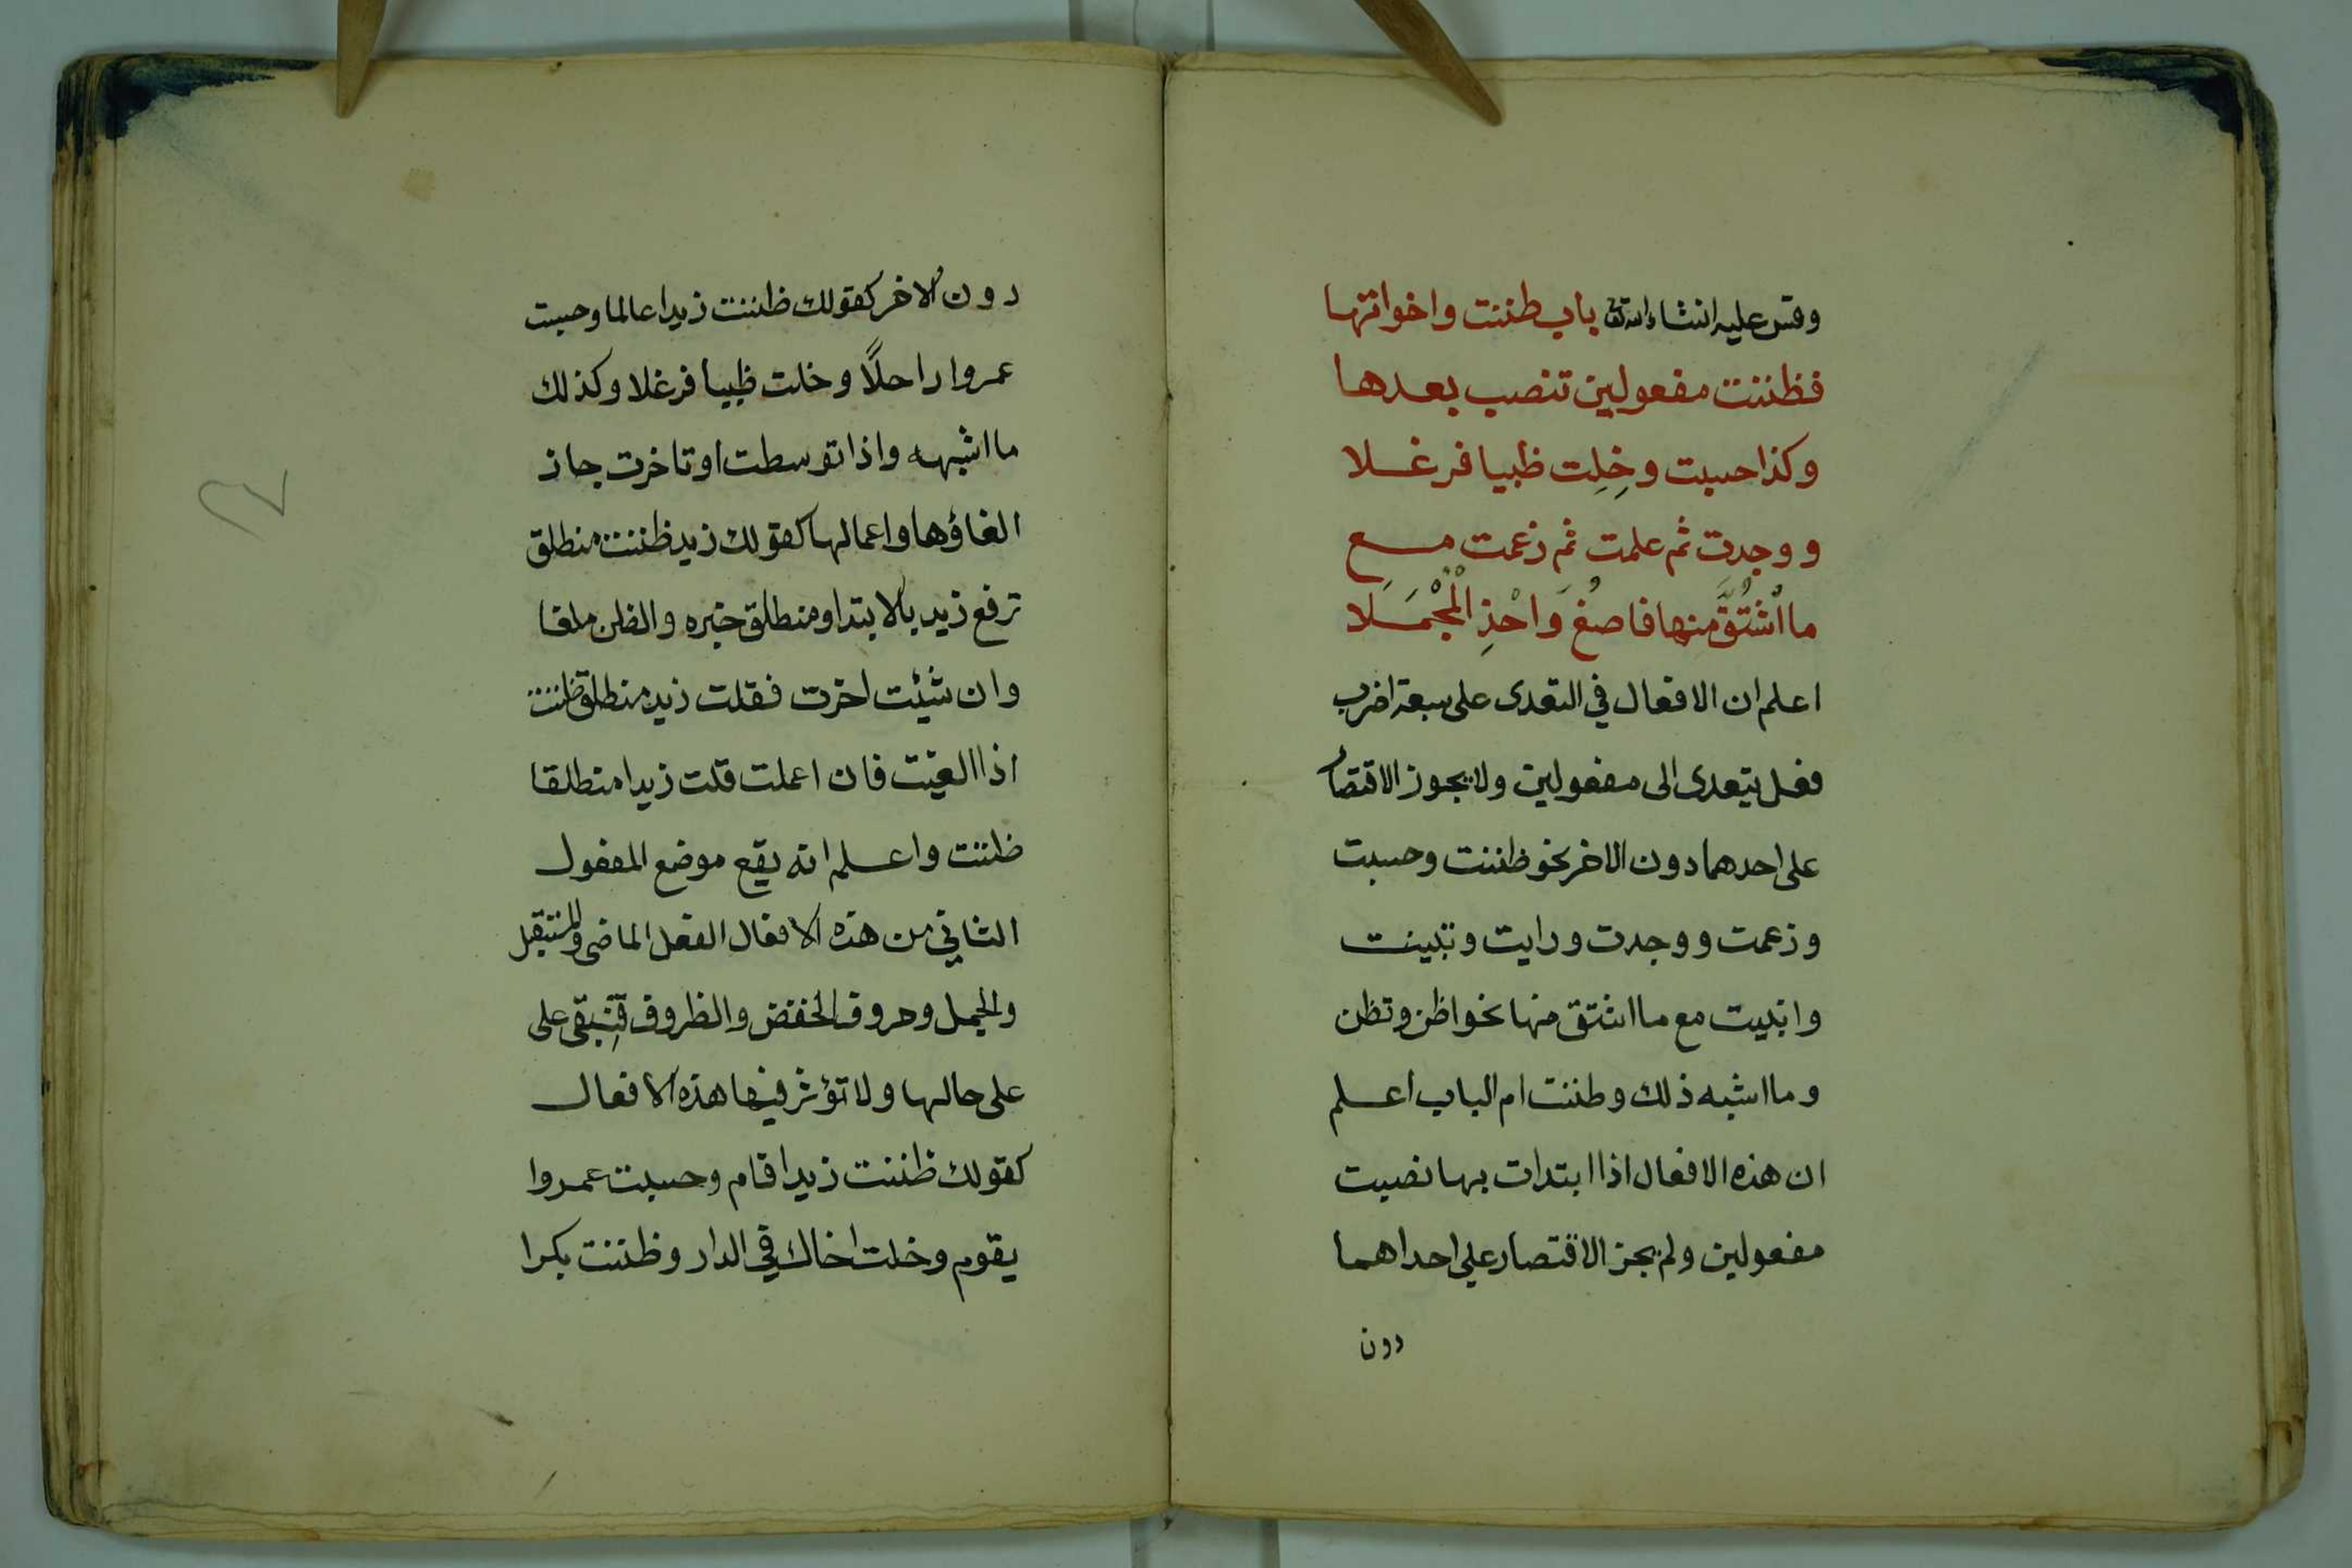 وقس عليه انشاء الله تعا باب ظننت واخواتها
فظننت مفعولين تنصب بعدها
وكذا حسبت وخِلِت ظبيا فرغلا
ووجدت ثم علمت ثم زعمت مع
ما اُشْتُقَّ منها فاصغُ وَاحْذِ الْمْجْمَلَا
اعلم ان الافعال في التعدى على سبعة اضرب
فعل يتعدى الى مفعولين ولا يجوز الاقتصار
على احدهما دون الاخر نحو ظننت وحسبت
وزعمت ووجدت ورايت وتبينت
وانبيت مع ما اشتق منها نحو اظن وتظن
وما اشبه ذلك وظننت ام الباب اعلم
ان هذه الافعال اذا ابتدات بها نصبت
مفعولين ولم يجز الاقتصار على احداهما
دون
دون الاخر كقولك ظننت زيدا عالما وحسبت
عمروا راحلًا وخلت ظبيا فرغلا وكذلك
ما اشبهه واذا توسطت او تاخرت جاز
الغاؤها واعمالها كقولك زيد ظننت منطلق
ترفع زيد بالابتدا ومنطلق خبره والظن ملغا
وان شئت اخرت فقلت زيد منطلق ظننت
اذا الغيت فان اعملت قلت زيدا منطلقا
ظننت واعلم انه يقع موضع المفعول
الثاني من هذه الافعال الفعل الماضي والمستقبل
والجمل وحروف الخفض والظروف فتبقى على
على حالها ولا تؤثر فيها هذه الافعال
كقولك ظننت زيدا قام وحسبت عمروا
يقوم وخلت اخاك في الدار وظننت بكرا